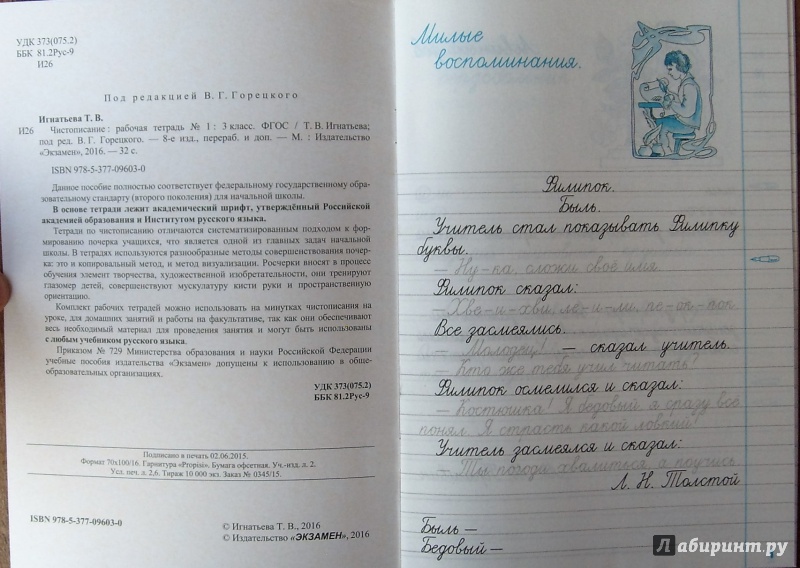 УДК 373(075.2)
ББК 81.2Рус-9
И26
Под редакцией В. Г. Горецкого
Игнатьева Т. В.
И26 Чистописание : рабочая тетрадь № 1 : 3 класс. ФГОС / Т. В. Игнатьева;
под ред. В. Г. Горецкого. — 8-е изд., перераб. и доп. — М. : Издательство
«Экзамен», 2016. — 32 с.
ISBN 978-5-377-09603-0
Данное пособие полностью соответствует федеральному государственному обра-
зовательному стандарту (второго поколения) для начальной школы.
В основе тетради лежит академический шрифт, утверждённый Российской
академией образования и Институтом русского языка.
Тетради по чистописанию отличаются систематизированным подходом к фор-
мированию почерка учащихся, что является одной из главных задач начальной
школы. В тетрадях используются разнообразные методы совершенствования почер-
ка: это и копировальный метод, и метод визуализации. Росчерки вносят в процесс
обучения элемент творчества, художественной изобретательности, они тренируют
глазомер детей, совершенствуют мускулатуру кисти руки и пространственную
ориентацию.
Комплект рабочих тетрадей можно использовать на минутках чистописания на
уроке, для домашних занятий и работы на факультативе, так как они обеспечивают
весь необходимый материал для проведения занятия и могут быть использованы
с любым учебником русского языка.
Приказом № 729 Министерства образования и науки Российской Федерации
учебные пособия издательства «Экзамен» допущены к использованию в обще-
образовательных организациях.
УДК 373(075.2)
ББК 81.2Рус-9
Подписано в печать 02.06.2015.
Формат 70х100/16. Гарнитура «Propisi». Бумага офсетная. Уч.-изд. л. 2.
Усл. печ. л. 2,6. Тираж 10 000 экз. Заказ № 0345/15.
ISBN 978-5-377-09603-0
© Игнатьева Т. В., 2016
© Издательство «ЭКЗАМЕН», 2016
Милые
воспоминания.
Филипок.
Быль.
Учитель стал показывать Филипку
буквы.
— Ну-ка, сложи своё имя.
Филипок сказал:
— Хве-и-хви, ле-и-ли, пе-ок-пок.
Все засмеялись.
— Молодец! — сказал учитель.
— Кто же тебя учил читать?
Филипок осмелился и сказал:
— Костюшка! Я бедовый, я сразу всё
понял. Я страсть какой ловкий!
Учитель засмеялся и сказал:
— Ты погоди хвалиться, а поучись.
Л. Н. Толстой
Быль —
Бедовый —
Лабиринт.ру